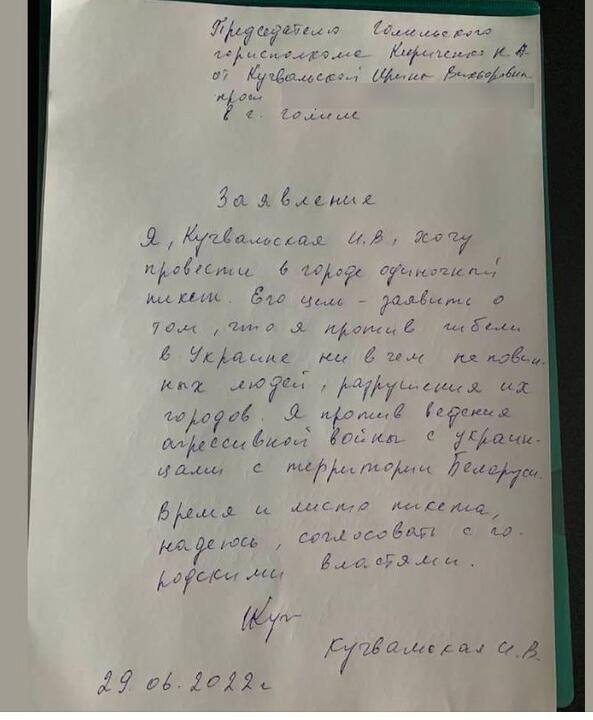 Председателю Гомельского
горисполкома Кириченко К А
от Кучвальской Ирины Викторовны
прож
в г. Гомель
Заявление
Я, Кучвальская И.В, хочу
провести в городе одиночный
пикет. Его цель - заявить о
том, что я против гибели
в Украине ни в чем не повин-
ных людей, разрушения их
городов. Я против ведения
агрессивной войны с украин-
цами с территории Беларуси.
Время и место пикета,
надеюсь, согласовать с го-
родскими властями.
Куч
Кучвальская И.В.
29.06.2022г